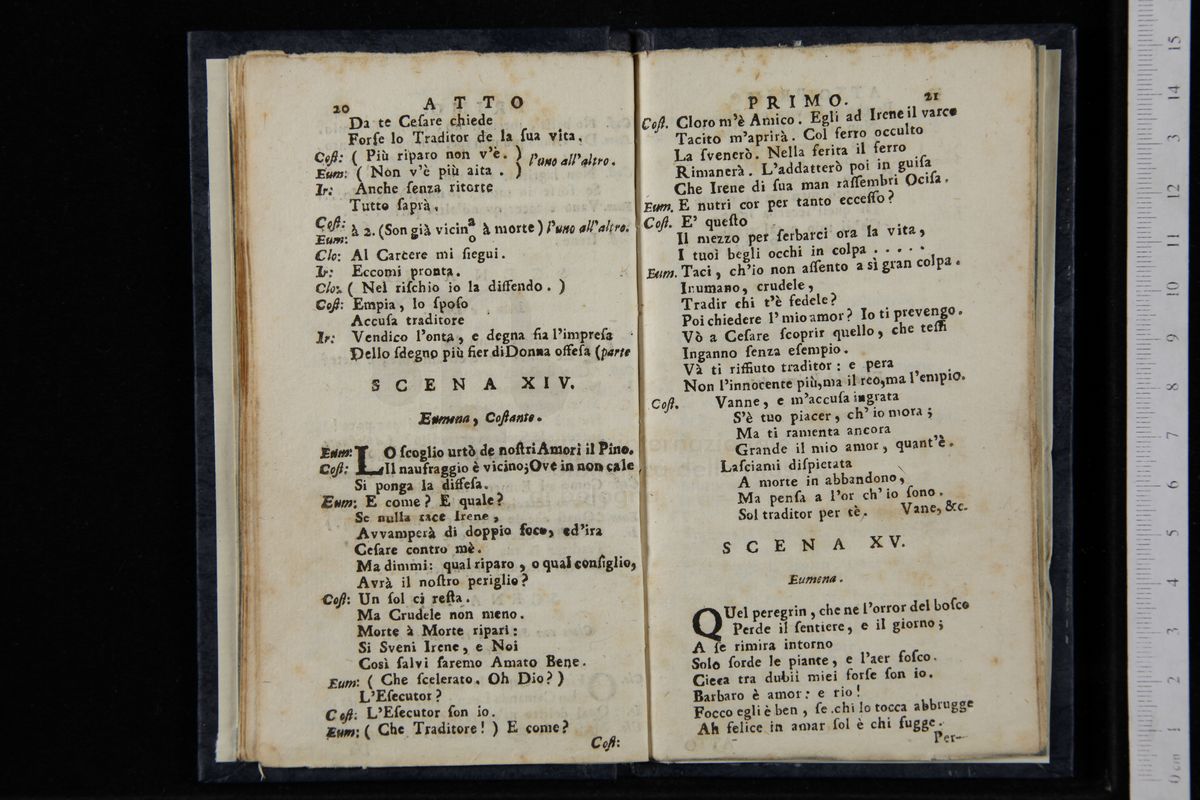 20 ATTO
Da te Ceſare chiede
Forſe lo Traditor de la ſua vita.
Coſt: ( Più riparo non v'è. ) l'uno all'altro.
Eum: ( Non v'è più aita . )
Ir: Anche ſenza ritorte
Tutto ſaprà.
Coſt: Eum: à 2. (Son già vicin a o à morte) l'uno all'altro.
Clo: Al Carcere mi ſiegui.
Ir: Eccomi pronta.
Clo: ( Nel riſchio io la diffendo. )
Coſt: Empia, lo ſpoſo
Accuſa traditore
Ir: Vendico l'onta, e degna ſia l'impreſa
Dello ſdegno più fier di Donna offeſa (parte
SCENA XIV.
Eumena, Coſtante.
Eum: LO ſcoglio urtò de noſtri Amori il Pino.
Coſt: Il naufraggio è vicino; Ove in non cale
Si ponga la diffeſa.
Eum: E come? E quale?
Se nulla tace Irene,
Avvamperà di doppio foco, ed'ira
Ceſare contro mè.
Ma dimmi: qual riparo, o qual conſiglio,
Avrà il noſtro periglio?
Coſt: Un ſol ci reſta.
Ma Crudele non meno.
Morte à Morte ripari:
Si Sveni Irene, e Noi
Così ſalvi ſaremo Amato Bene.
Eum: ( Che ſcelerato. Oh Dio? )
L'Eſecutor?
Coſt: L'Eſecutor ſon io.
Eum: ( Che Traditore! ) E come?
Coſt:
PRIMO. 21
Coſt. Cloro m'è Amico. Egli ad Irene il varco
Tacito m'aprirà. Col ferro occulto
La ſvenerò. Nella ferita il ferro
Rimanerà. L'addatterò poi in guiſa
Che Irene di ſua man raſſembri Ociſa.
Eum. E nutri cor per tanto ecceſſo?
Coſt. E' queſto
Il mezzo per ſerbarci ora la vita,
I tuoi begli occhi in colpa . . . . .
Eum. Taci, ch'io non aſſento a sì gran colpa.
Inumano, crudele,
Tradir chi t'è fedele?
Poi chiedere l'mio amor? Io ti prevengo.
Vò a Ceſare ſcoprir quello, che teſſi
Inganno ſenza eſempio.
Và ti riffiuto traditor: e pera
Non l'innocente più, ma il reo, ma l'empio.
Coſt. Vanne, e m'accuſa ingrata
S'è tuo piacer, ch'io mora;
Ma ti ramenta ancora
Grande il mio amor, quant'è.
Laſciami diſpietata
A morte in abbandono,
Ma penſa a l'or ch'io ſono.
Sol traditor per tè. Vane, &c.
SCENA XV.
Eumena.
QUel peregrin, che ne l'orror del boſco
Perde il ſentiere, e il giorno;
A ſe rimira intorno
Solo ſorde le piante, e l'aer foſco.
Cieca tra dubii miei forſe ſon io.
Barbaro è amor: e rio!
Focco egli è ben, ſe chi lo tocca abbrugge
Ah felice in amar ſol è chi fugge.
Per-